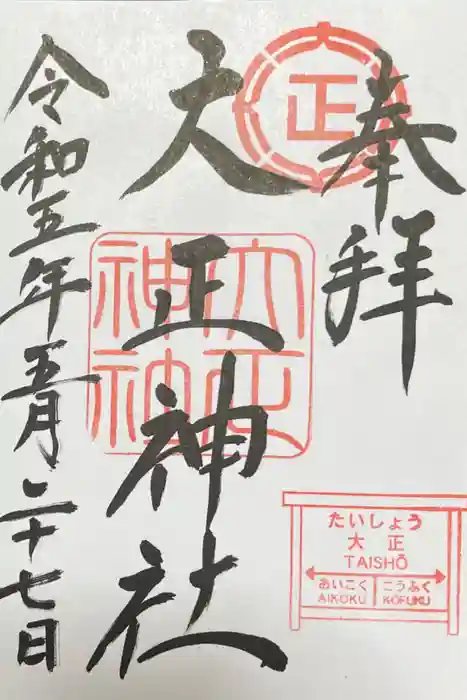 奉拝
正
大正神社
大正神神
令和五年五月二十七日
たいしょう
大正
TAISHŌ
あいこく
こうふく
AIKOKU
KŌFUKU